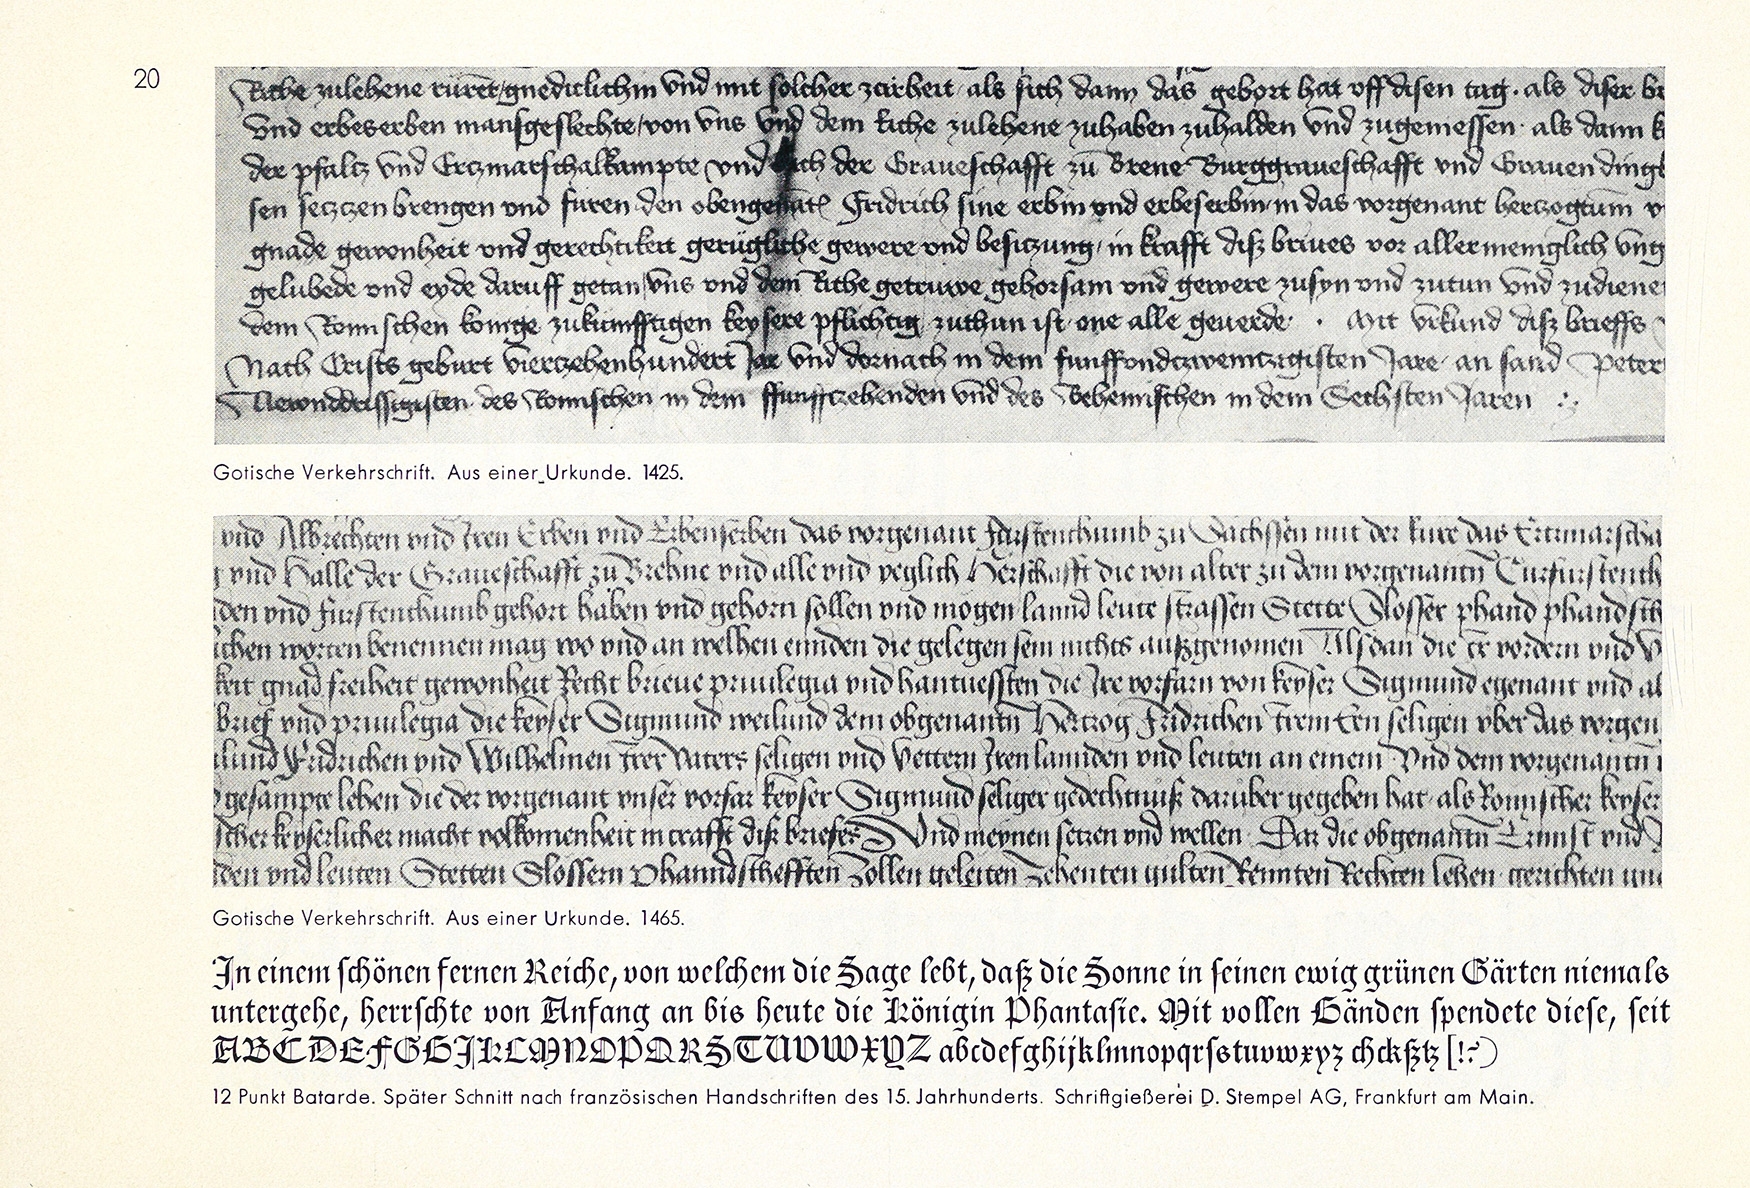 20
Riche zulehene ruret gnediclichin vnd mit solcher zcirheit als sich dann das gebort hat vff disen tag. als diser
vnd erbeserben mansgeslechte von vns vnd dem Riche zulehene zuhaben zuhalden vnd zugeniessen. als dann
der pfaltz vnd Ertzmarschalkampte vnd auch der Graueschafft zu Brene Burggraueschafft vnd Grauen
sen setzczen brengen vnd furen den obengenant Fridrich sine erbin vnd erbeserbin in das vorgenant herczogtum
gnade gewonheit vnd gerechtikeit gerüglliche gewere vnd besitzung in krafft disz brives vor allermeniglich
gelubede vnd eyde daruff getan vns vnd dem Riche getruwe gehorsam vnd gewere zusyn vnd zutun vnd
dem Romischen konige zukunfftigen keysere pflichtig zuthun ist one alle geuerde. Mit vrkund disz brieffs
Nach Crists geburt vierczehenhundert Jar vnd dornach in dem funffvndczwentzigisten Jare an sand Peter
des Romischen in dem ffunffczehenden vnd des Behemischen in dem Sechsten Jaren
Gotische Verkehrschrift. Aus einer Urkunde. 1425.
vnd Albrechten vnd Iren Erben vnd Erbenserben das vorgenant furstenthumb zu Sachssen mit der kure das
vnd Halle der Graueschafft zu Brehne vnd alle vnd yeglich Herschafft die von alter zu dem vorgenantn
den vnd furstenthumb gehort haben vnd gehorn sollen vnd mogen lannd leute strassen Stette Slosser phand
worten benennen mag wo vnd an welhen ennden die gelegen sein nichts auszgenomen Alsdan die er vordern vnd
keit gnad freiheit gewonheit Recht brieue priuilegia vnd hantuessten die Ire vorfarn von keyser Sigmund egenant vnd
brief vnd priuilegia die keyser Sigmund weilund dem obgenantn Hertzog Fridrichen Irem Een seligen vber das
Fridrichen vnd Wilhelmen Irer Vaters seligen vnd Vettern Iren lannden vnd leuten an einem Vnd dem vorgenantn
gesampte lehen die der vorgenant vnser vorfar keyser Sigmund seliger gedechtnusz daruber gegeben hat als Romischer keyser
keyserlicher macht volkomenheit in crafft disz briefes Vnd meynen setzen vnd wellen Daz die obgenantn Ernnst vnd
den vnd leuten Stetten Slossern Phanndschefften Zollen geleiten Zehenten gulten Rennten Rechten lehen gerichten
Gotische Verkehrschrift. Aus einer Urkunde. 1465.
In einem schönen fernen Reiche, von welchem die Sage lebt, daß die Sonne in seinen ewig grünen Gärten niemals
untergehe, herrschte von Anfang an bis heute die Königin Phantasie. Mit vollen Händen spendete diese, seit
ABCDEFGHIJKLMNOPQRSTUVWXYZ abcdefghijklmnopqrſstuvwxyz chckßtz [!?)
12 Punkt Batarde. Später Schnitt nach französischen Handschriften des 15. Jahrhunderts. Schriftgießerei D. Stempel AG, Frankfurt am Main.